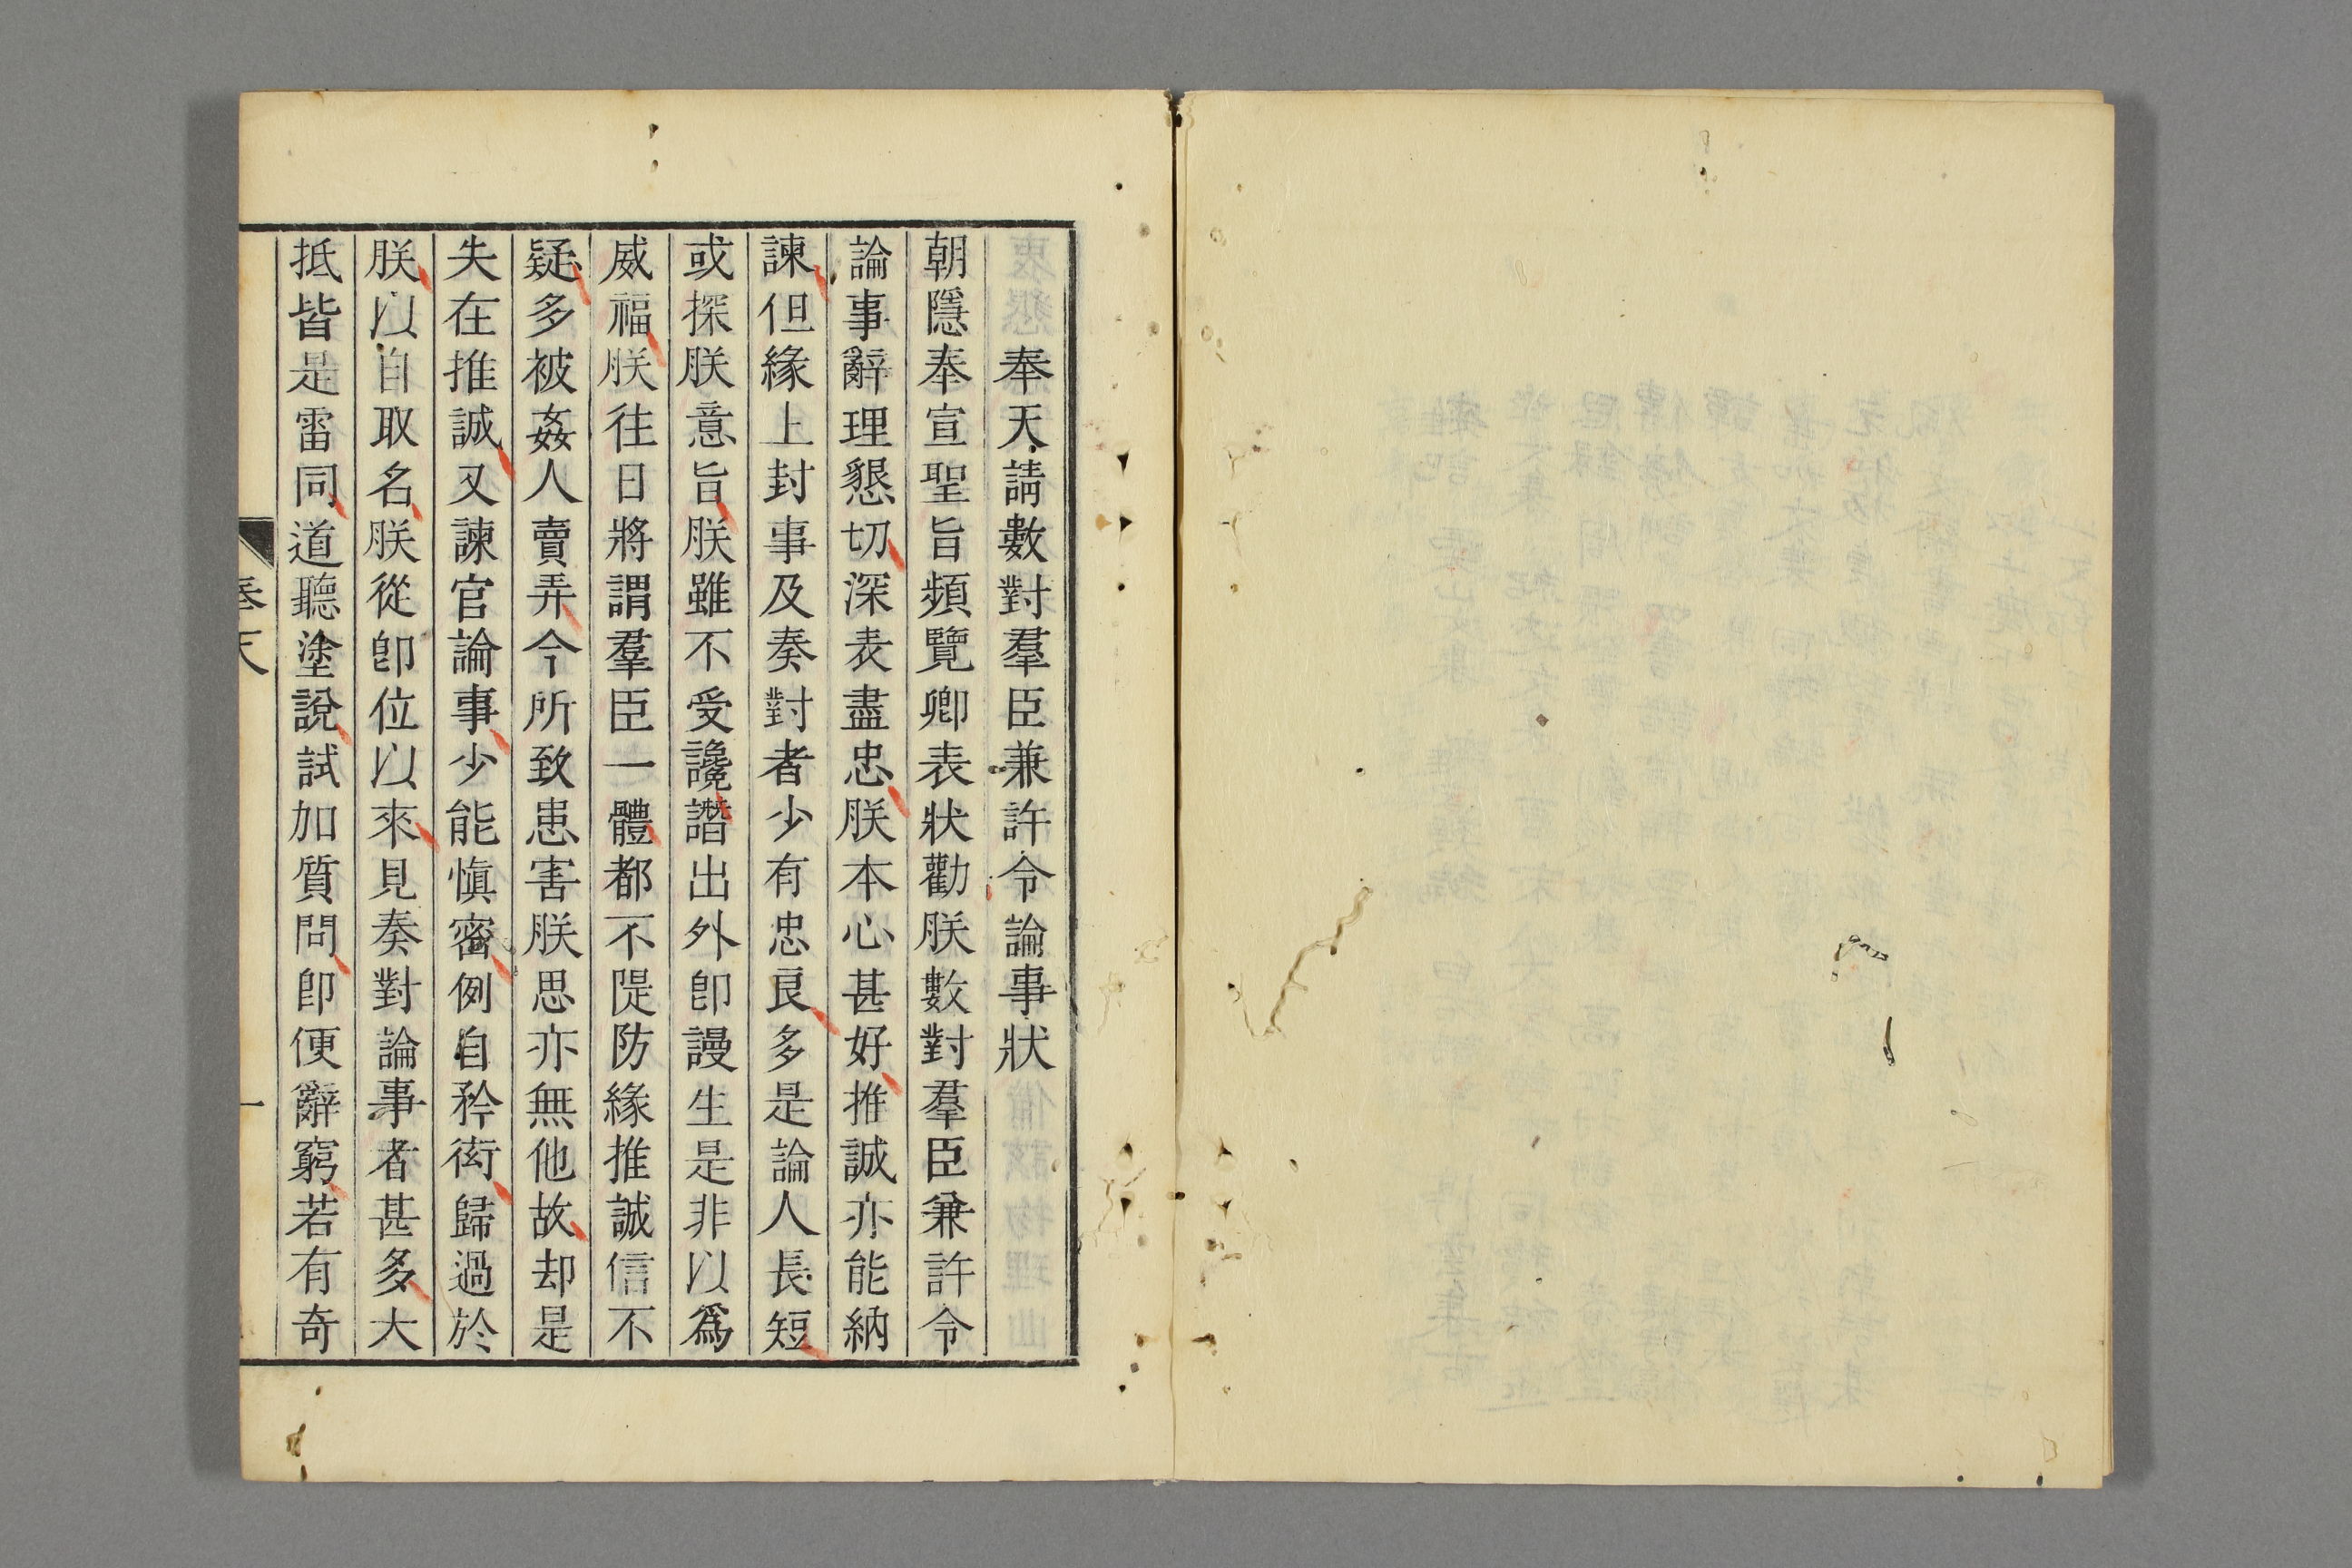 奉天請數對羣臣兼許令論事狀
朝隱奉宣聖旨頻覽卿表狀勸朕數對羣臣兼許令
論事辭理懇切深表盡忠朕本心甚好推誠亦能納
諫但緣上封事及奏對者少有忠良多是論人長短
或探朕意旨朕雖不受讒譖出外卽謾生是非以爲
威福朕往日將謂羣臣一體都不隄防緣推誠信不
疑多被姦人賣弄今所致患害朕思亦無他故却是
失在推誠又諫官論事少能愼密例自矜衒歸過於
朕以自取名朕從卽位以來見奏對論事者甚多大
抵皆是雷同道聽塗說試加質問卽便辭窮若有奇
一